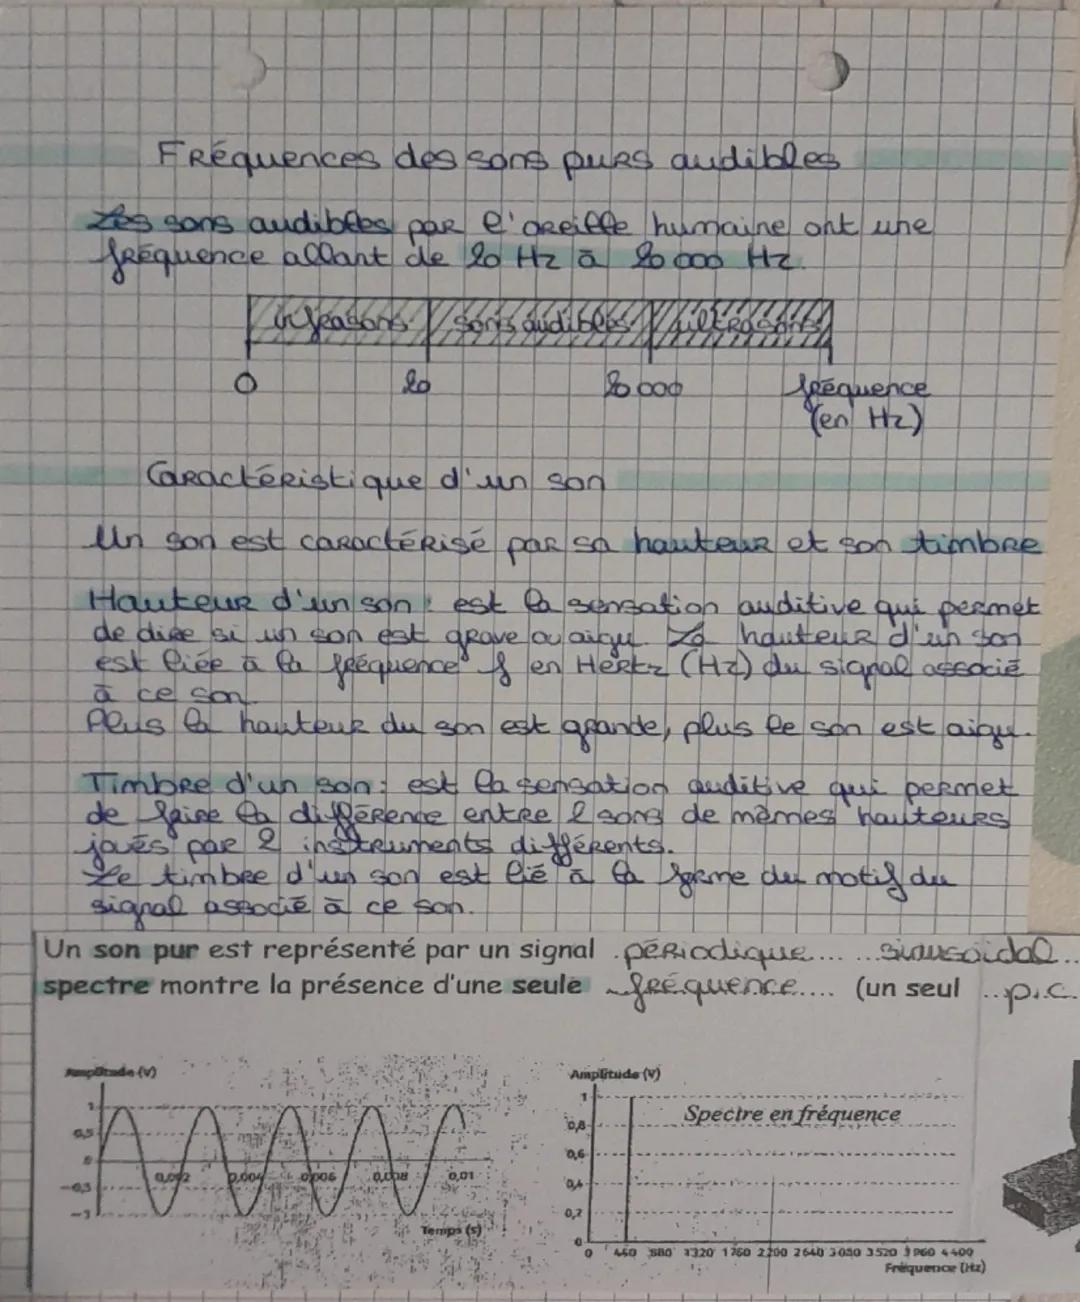 Fréquences des sons purs audibles
Les sons audibles par l'oreille humaine ont une
fréquence allant de 20 Hz à 20 000 Hz.
infrasons sons audibles ultrasons
0 20 20 000 fréquence
(en Hz)
Caractéristique d'un son
Un son est caractérisé par sa hauteur et son timbre
Hauteur d'un son : est la sensation auditive qui permet
de dire si un son est grave ou aigu. La hauteur d'un son
est liée à la fréquence f en Hertz (Hz) du signal associé
à ce son.
Plus la hauteur du son est grande, plus le son est aigu.
Timbre d'un son : est la sensation auditive qui permet
de faire la différence entre 2 sons de mêmes hauteurs
joués par 2 instruments différents.
Le timbre d'un son est lié à la forme du motif du
signal associé à ce son.
Un son pur est représenté par un signal .périodique.... ...sinusoidal..
spectre montre la présence d'une seule fréquence.... (un seul ..pic.
Amplitude (V)
1
0,5
0
-0,5
-1
0,002 0,004 0,006 0,008 0,01
Temps (s)
Amplitude (V)
Spectre en fréquence
1
0,8
0,6
0,4
0,2
0
0 440 880 1320 1760 2200 2640 3080 3520 3960 4400
Fréquence (Hz)